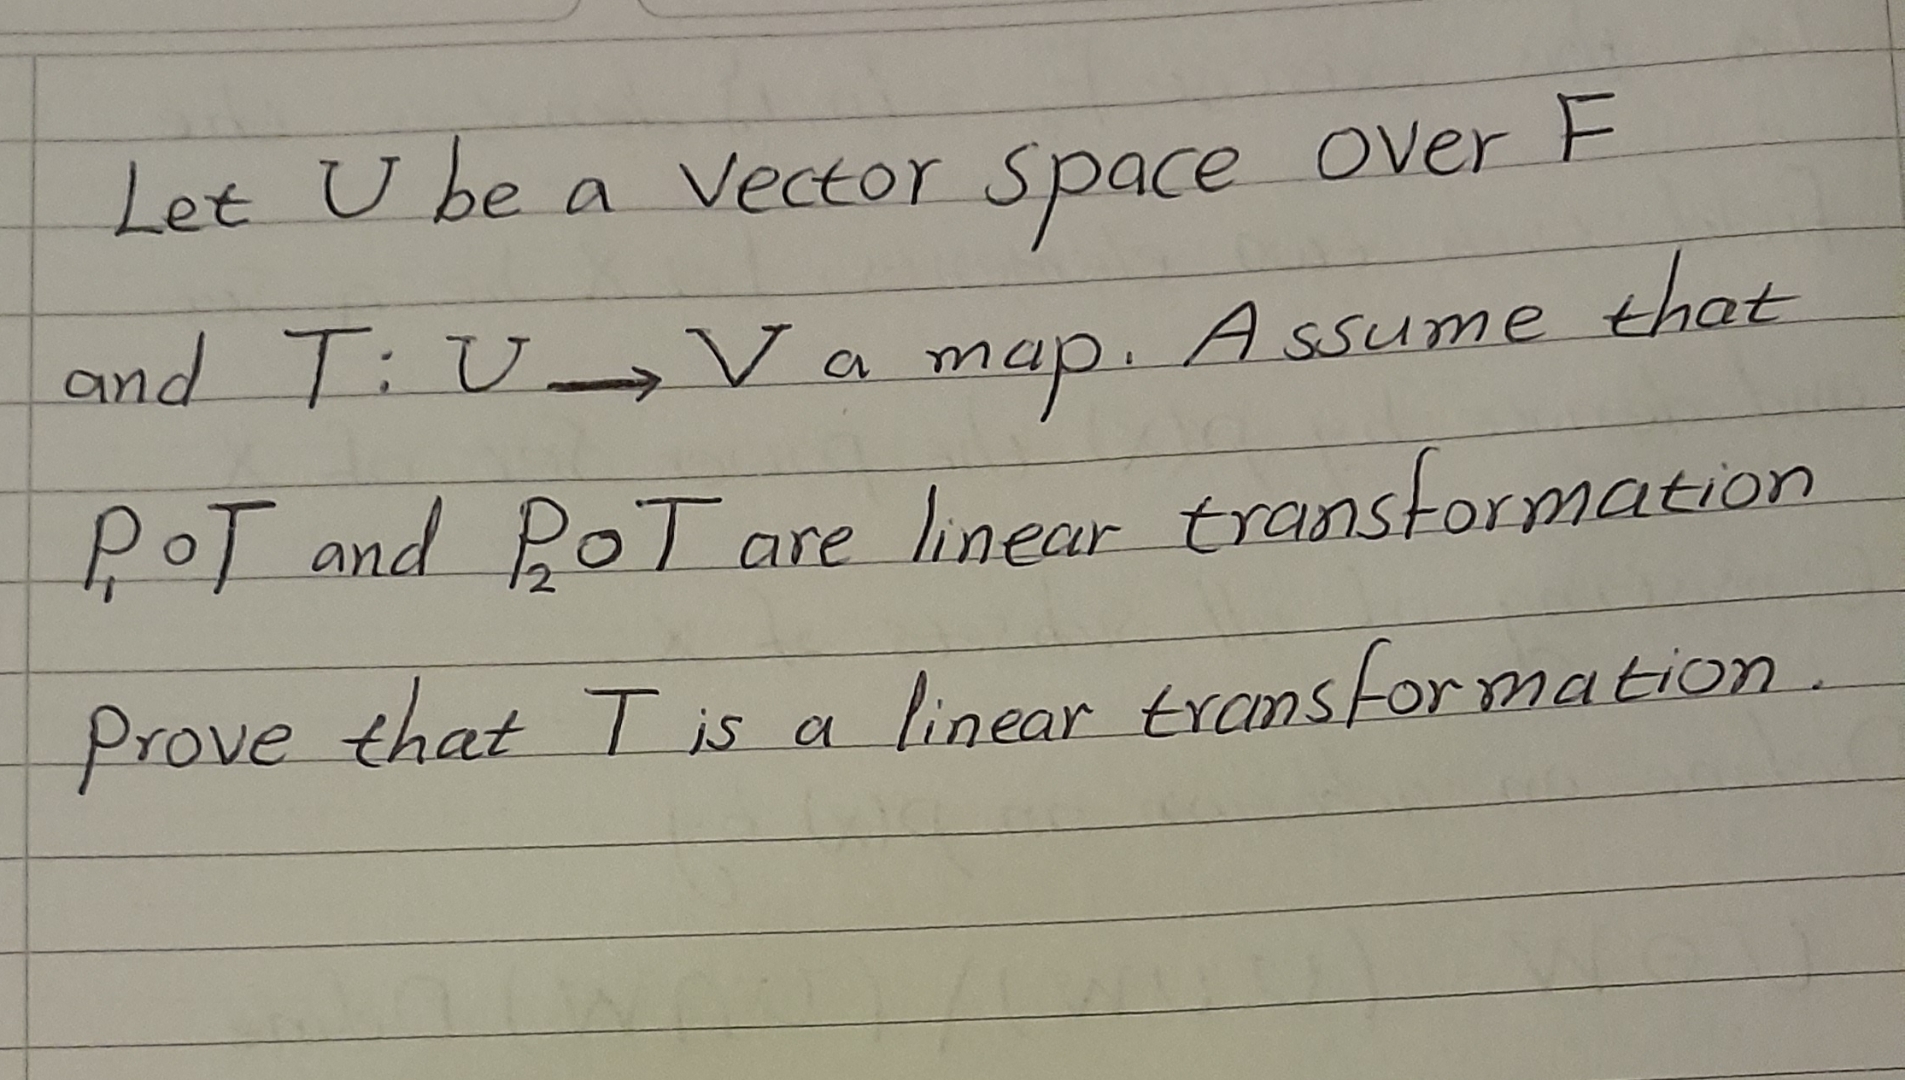 Let U be a vector space over F
and T: U → V a map. Assume that
P₁oT and P₂oT are linear transformation
prove that T is a linear transformation.